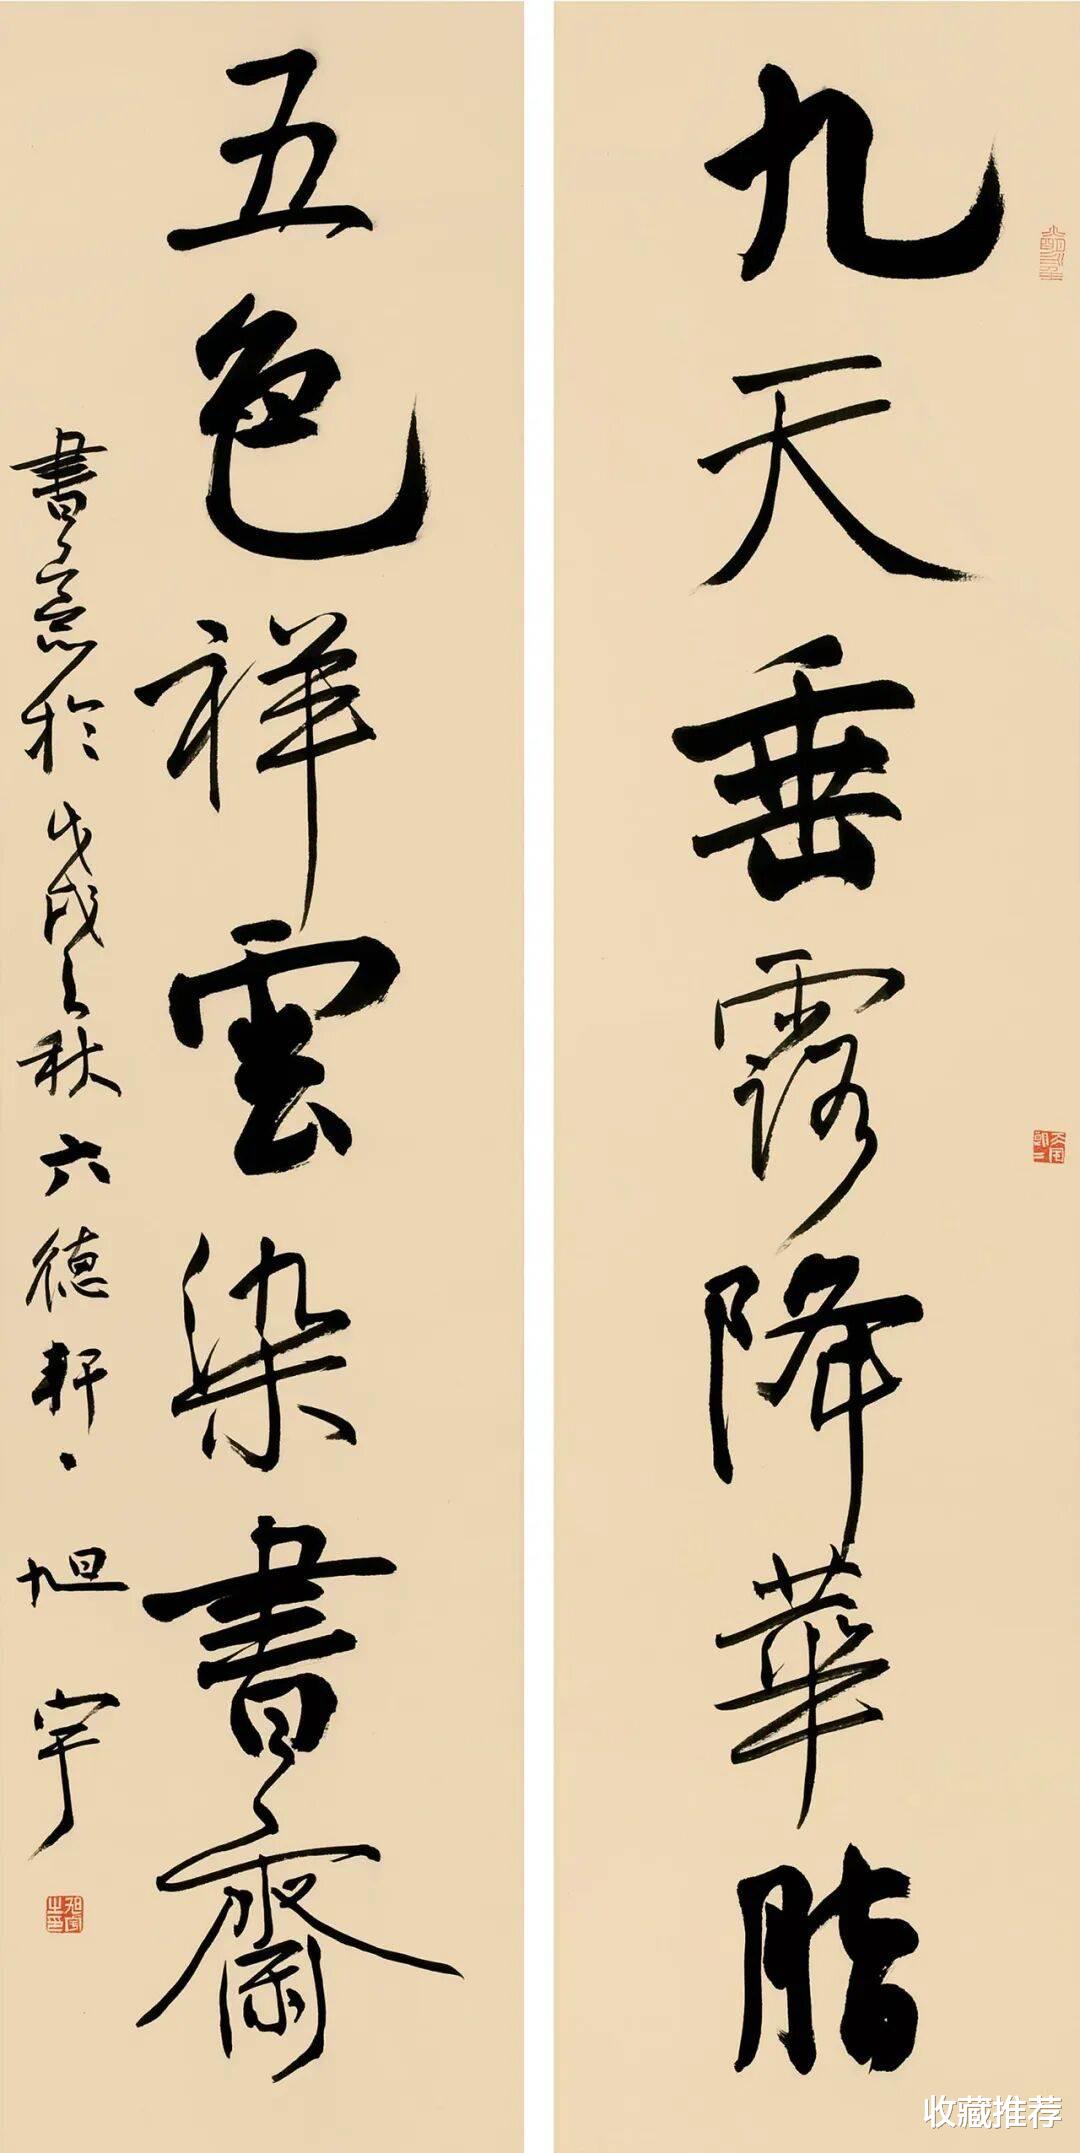 九天垂露降華脂
五色祥雲染書齋
書意於戊戌之秋六德軒旭宇
收藏推荐